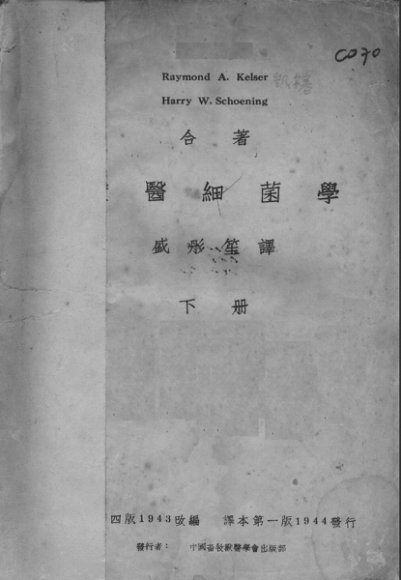 CO70
Raymond A. Kelser
Harry W. Schoening
合著
醫細菌學
盛彤笙譯
下册
四版1943改編 譯本第一版1944發行
發行者： 中國畜牧獸醫學會出版部